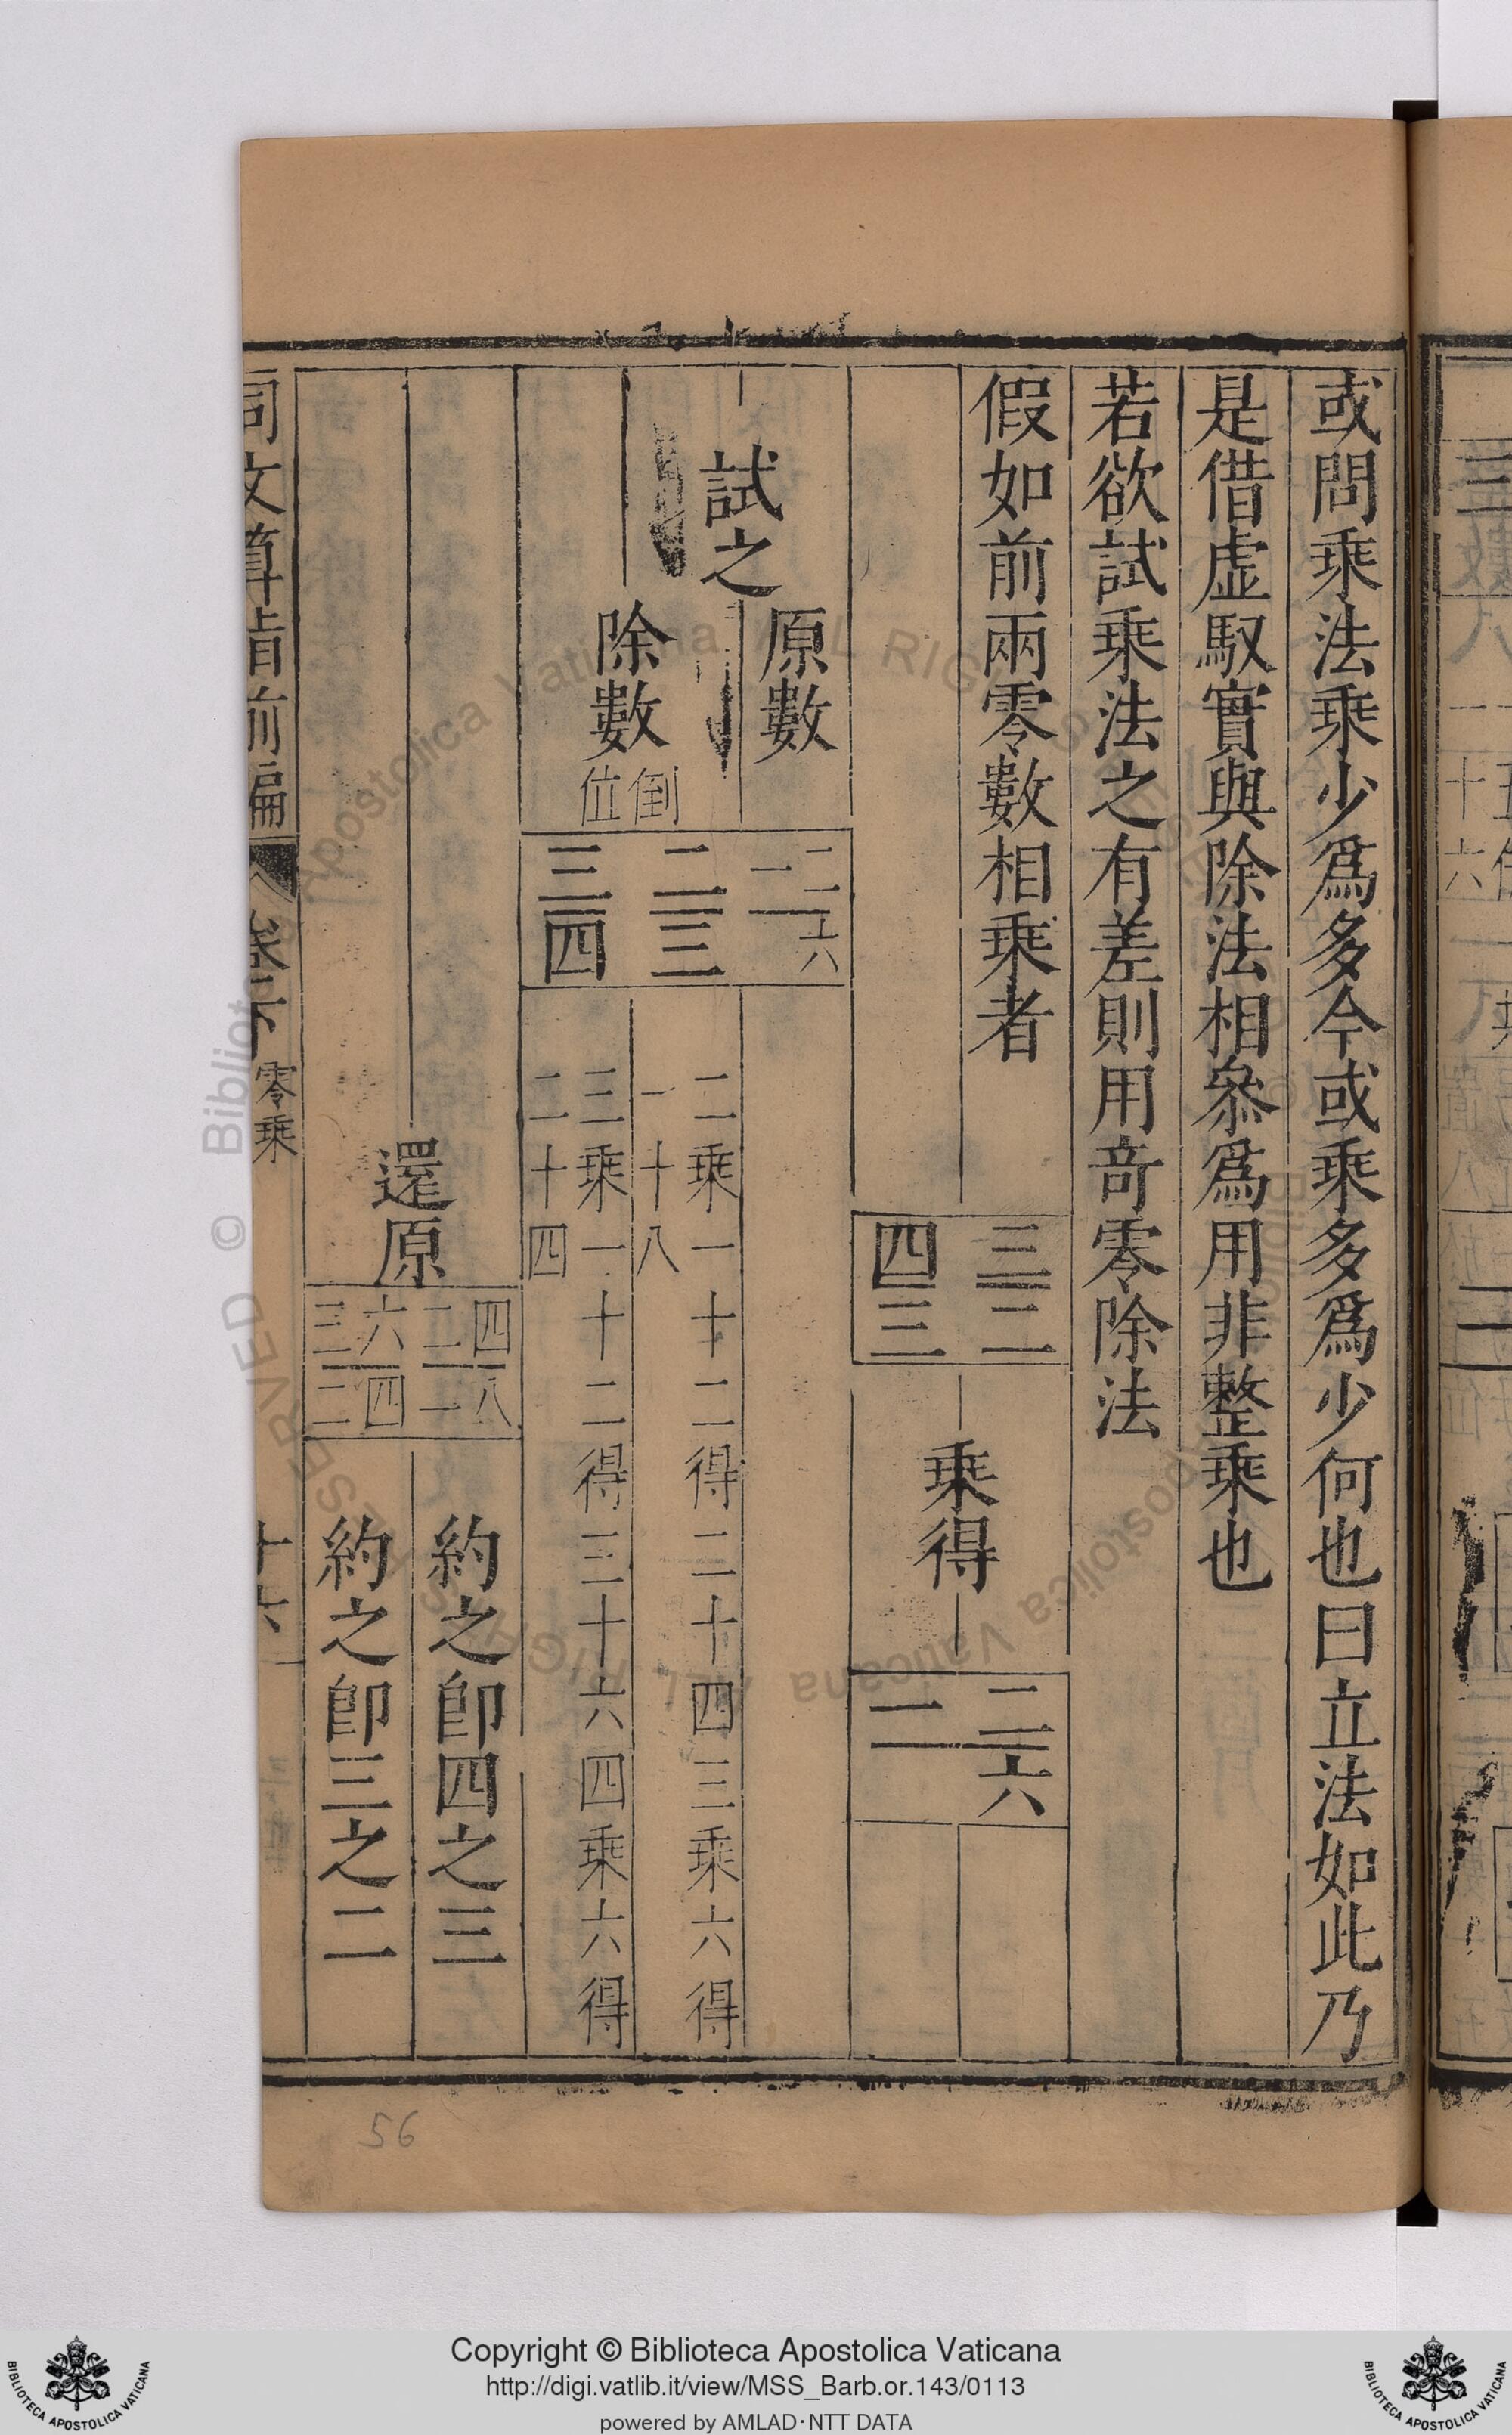 或問乘法乘少爲多今或乘多爲少何也曰立法如此乃
是借虛馭實與除法相叅爲用非整乘也
若欲試乘法之有差則用竒零除法
假如前兩零數相乘者
三二
四三
乘得
一二
六
試之
原數
除數
倒位
一二
六
二三
三四
二乘一十二得二十四三乘六得
一十八
三乘一十二得三十六四乘六得
二十四
還原
二四
一八
三六
二四
約之卽四之三
約之卽三之二
同文算指前編
卷下
零乘
十六
56
Copyright © Biblioteca Apostolica Vaticana
http://digi.vatlib.it/view/MSS_Barb.or.143/0113
powered by AMLAD·NTT DATA